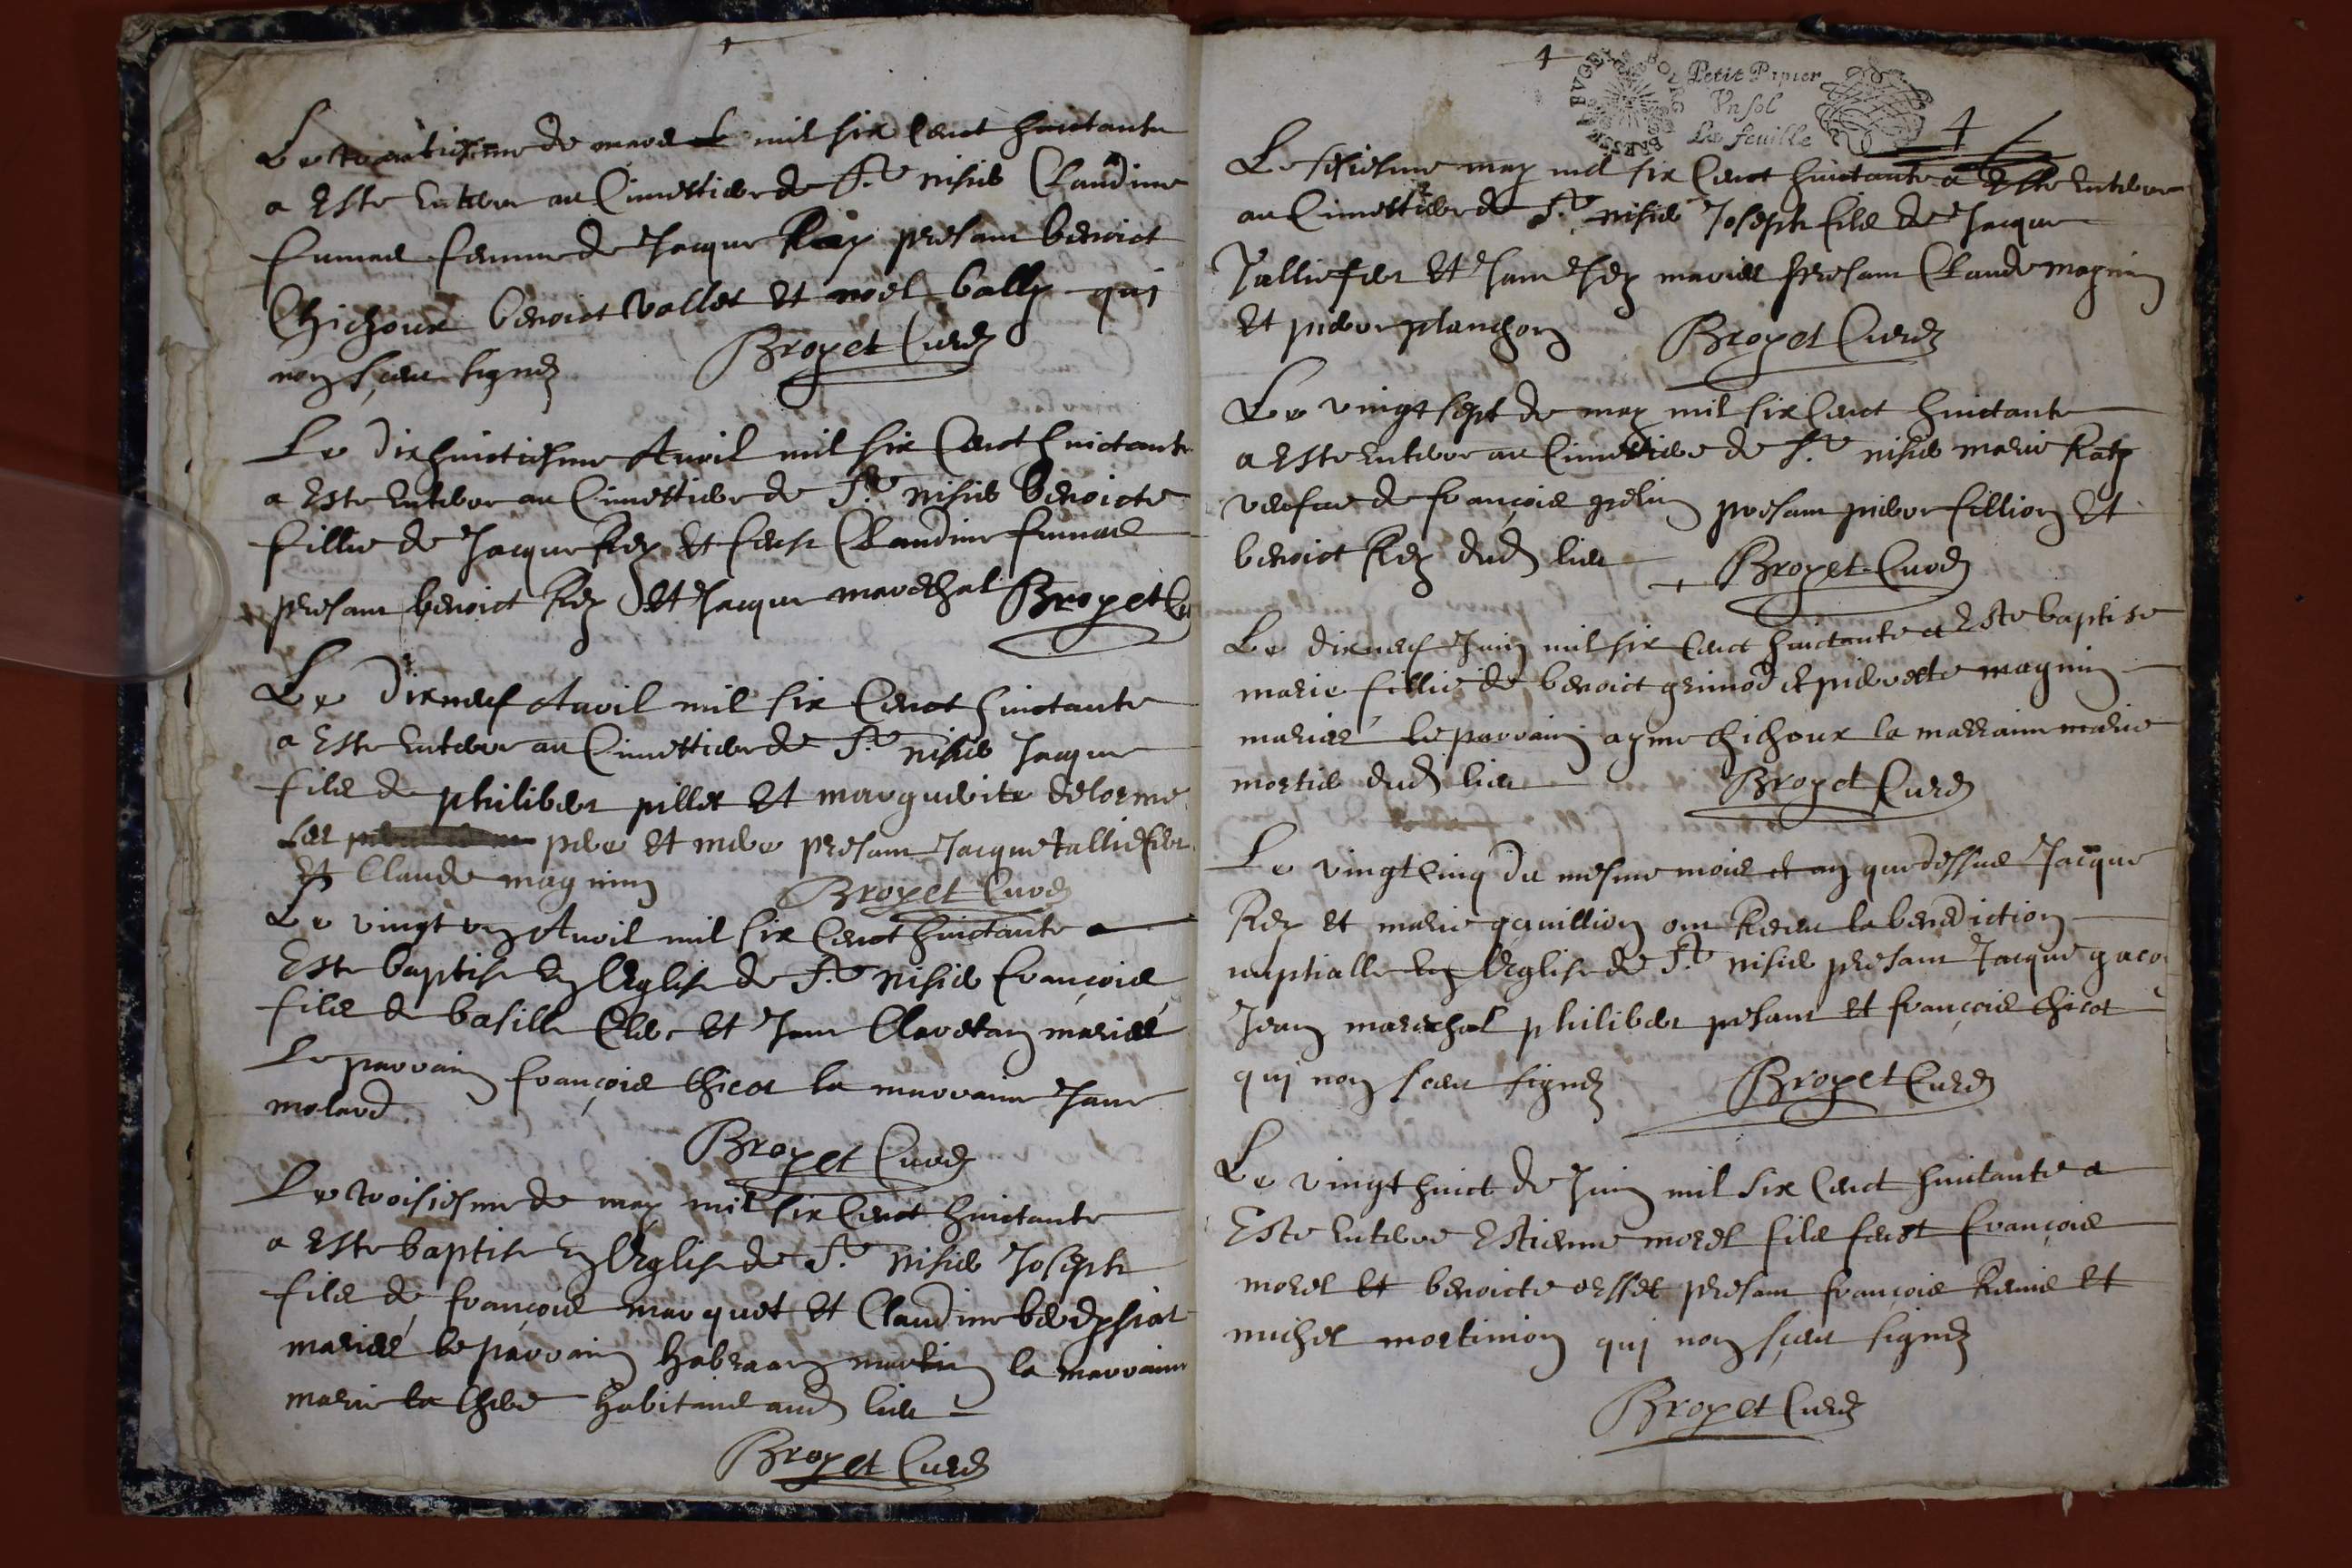 Le trentiesme de mars mil six cent huictante
a Este Enterre au Cimettiere de St nisies Claudine
fumas femme de Jacque Rey presant benoict
Chichoux benoict Vallet Et noel bally qui
non sceu signés Broyet Curé
Le dixhuictiesme Auril mil six Cent huictante
a Este Enterre au Cimettiere de St nisies benoicte
fillie de Jacque Rey Et feue Claudine fumas
presant benoict Rey Et Jacque mareschal Broyet Cu
Le dixneuf Auril mil six Cent huictante
a Este Enterre au Cimettiere de St nisies Jacque
fils de philiber pillet Et marguerite delorme
ses pere Et mere presant Jacque talliefer
Et Claude magnin Broyet Curé
Le vingt un Auril mil six Cent huictante a
Este baptise En l'Eglise de St nisies françois
fils de basille Et Jane Clavetan mariés
Le parrain françois Chicot la marraine Jane
molard
Broyet Curé
Le troisiesme de may mil six Cent huictante
a Este baptise En l'Eglise de St nisies Joseph
fils de françois marquet Et Claudine
mariés le parrain habraan martin la marraine
marie la Chere habitans aud lieu
Broyet Curé
4
BOURG BRESSE BVGEY
Petit Papier
Vn sol
La feuille
4
Le sesiesme may mil six Cent huictante a Este Enterre
au Cimettiere de St nisies Joseph fils de Jacque
Talliefer Et Jane Rey mariés presant Claude magnin
Et pierre planchon Broyet Curé
Le vingt sept de may mil six Cent huictante
a Este Enterre au Cimettiere de St nisies marie Raty
vesfue de françois gelin presant pierre fillion Et
benoict Rey dud lieu Broyet Curé
Le dixneuf Juin mil six Cent huictante a Este baptise
marie fillie de benoict grimod et pierrette magnin
mariés le parrain ayme Chichoux la marraine marie
mortie dud lieu Broyet Curé
Le vingt Cinq du mesme mois et an que dessus Jacque
Rey et marie gouillion ont Receu la benediction
nuptialle En l'Eglise de St nisies presant Jacque gaco
Jean mareschal philiber pesant Et françois Chicot
qui non sceu signés Broyet Curé
Le vingt huict de Juin mil six Cent huictante a
Este Enterre Estienne morel fils feut françois
morel Et benoicte presant françois Et
michel mortinion qui non sceu signés
Broyet Curé